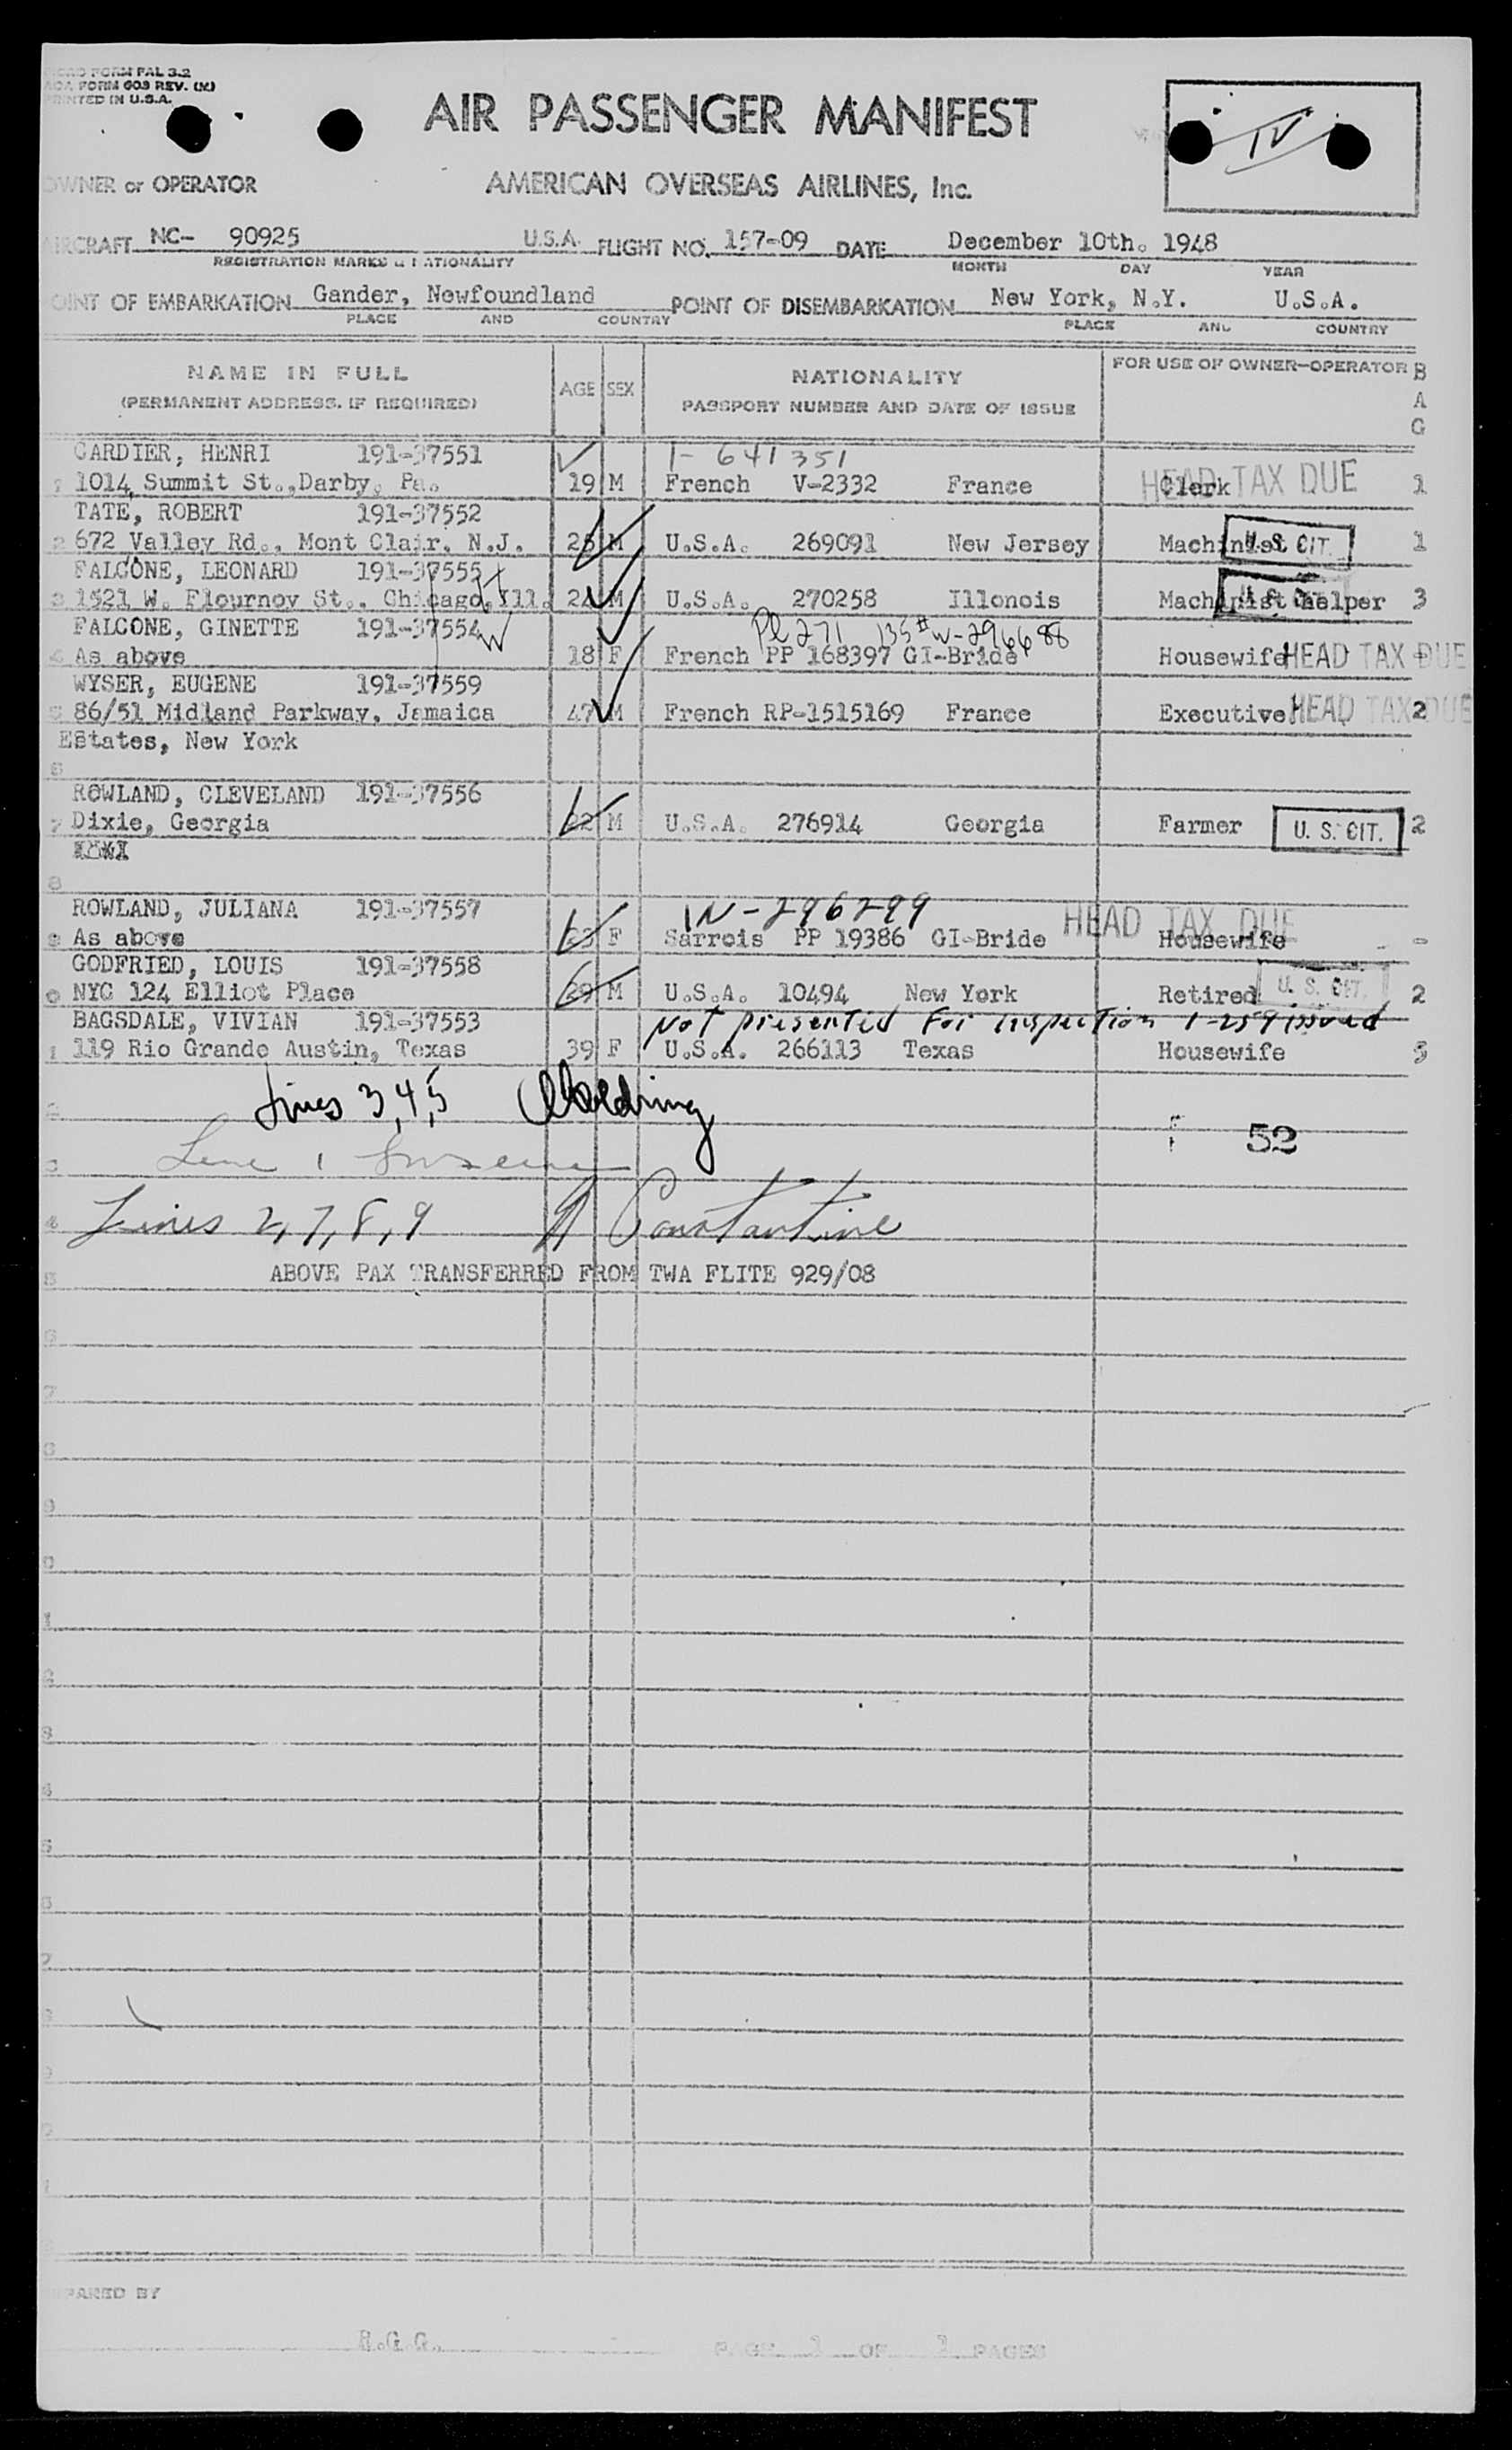 FORM PAL 3.2
FORM 609 REV. (M)
PRINTED IN U.S.A.
AIR PASSENGER MANIFEST
IV
OWNER or OPERATOR AMERICAN OVERSEAS AIRLINES, Inc.
AIRCRAFT NC- 90925 U.S.A. FLIGHT NO. 157-09 DATE December 10th. 1948
REGISTRATION MARKS & NATIONALITY MONTH DAY YEAR
POINT OF EMBARKATION Gander, Newfoundland POINT OF DISEMBARKATION New York, N.Y. U.S.A.
PLACE AND COUNTRY PLACE AND COUNTRY
NAME IN FULL AGE SEX NATIONALITY FOR USE OF OWNER-OPERATOR BAG
(PERMANENT ADDRESS, IF REQUIRED) PASSPORT NUMBER AND DATE OF ISSUE
CARDIER, HENRI 191-37551 1- 641351
1 1014 Summit St.,Darby, Pa. 19 M French V-2332 France Clerk HEAD TAX DUE 1
TATE, ROBERT 191-37552
2 672 Valley Rd., Mont Clair, N.J. 25 M U.S.A. 269091 New Jersey Machinist U. S. CIT. 1
FALCONE, LEONARD 191-37555
3 1521 W. Flournoy St., Chicago, Ill. 24 M U.S.A. 270258 Illonois Machinist helper 3
FALCONE, GINETTE 191-37554 W-296688
4 As above 18 F French PP 168397 GI-Bride Housewife HEAD TAX DUE -
WYSER, EUGENE 191-37559
5 86/51 Midland Parkway, Jamaica 47 M French RP-1515169 France Executive HEAD TAX DUE 2
Estates, New York
6
ROWLAND, CLEVELAND 191-37556
7 Dixie, Georgia 22 M U.S.A. 276914 Georgia Farmer U. S. CIT. 2
8
ROWLAND, JULIANA 191-37557 IN-296299
9 As above 23 F Sarrois PP 19386 GI-Bride Housewife HEAD TAX DUE -
GODFRIED, LOUIS 191-37558
0 NYC 124 Elliot Place 29 M U.S.A. 10494 New York Retired U. S. CIT. 2
BAGSDALE, VIVIAN 191-37553 Not presented for inspection 1-259 issued
1 119 Rio Grande Austin, Texas 39 F U.S.A. 266113 Texas Housewife 5
Lines 3,4,5
52
Line 1
Lines 2,7,8,9 Constantine
ABOVE PAX TRANSFERRED FROM TWA FLITE 929/08
PREPARED BY
R.G.G. PAGE 1 OF 1 PAGES